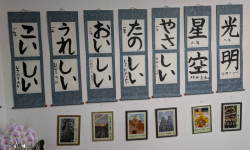 光明
星空
やさしい
たのしい
おいしい
うれしい
こいしい